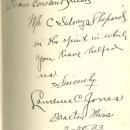 our constant friend
Mr C Sidney Shepard
in the spirit in which
you have helped
us
Sincerely
Laurence C Jones
Braxton Miss
2-25-33